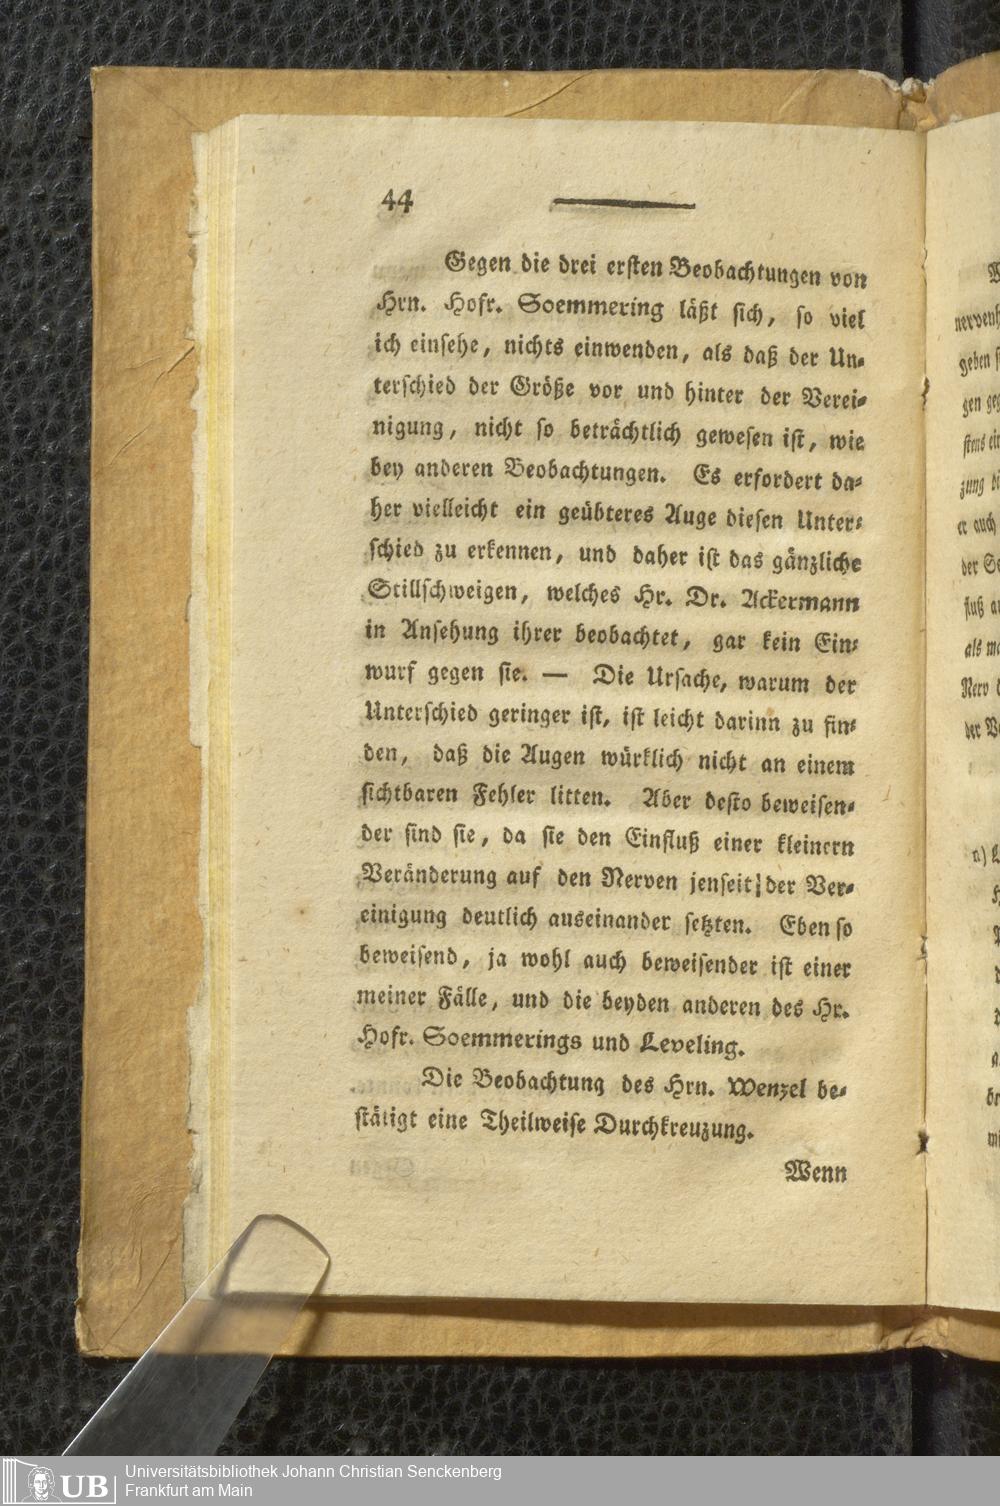 44
Gegen die drei ersten Beobachtungen von
Hrn. Hofr. Soemmering läßt sich, so viel
ich einsehe, nichts einwenden, als daß der Un-
terschied der Größe vor und hinter der Verei-
nigung, nicht so beträchtlich gewesen ist, wie
bey anderen Beobachtungen. Es erfordert da-
her vielleicht ein geübteres Auge diesen Unter-
schied zu erkennen, und daher ist das gänzliche
Stillschweigen, welches Hr. Dr. Ackermann
in Ansehung ihrer beobachtet, gar kein Ein-
wurf gegen sie. — Die Ursache, warum der
Unterschied geringer ist, ist leicht darinn zu fin-
den, daß die Augen würklich nicht an einem
sichtbaren Fehler litten. Aber desto beweisen-
der sind sie, da sie den Einfluß einer kleinern
Veränderung auf den Nerven jenseit der Ver-
einigung deutlich auseinander setzten. Eben so
beweisend, ja wohl auch beweisender ist einer
meiner Fälle, und die beyden anderen des Hr.
Hofr. Soemmerings und Leveling.
Die Beobachtung des Hrn. Wenzel be-
stätigt eine Theilweise Durchkreuzung.
Wenn
nervenh
geben s
gen geg
stens ein
zung di
er auch
der Se
fluß an
als ma
Nerv d
der Ve
n) L
UB
Universitätsbibliothek Johann Christian Senckenberg
Frankfurt am Main